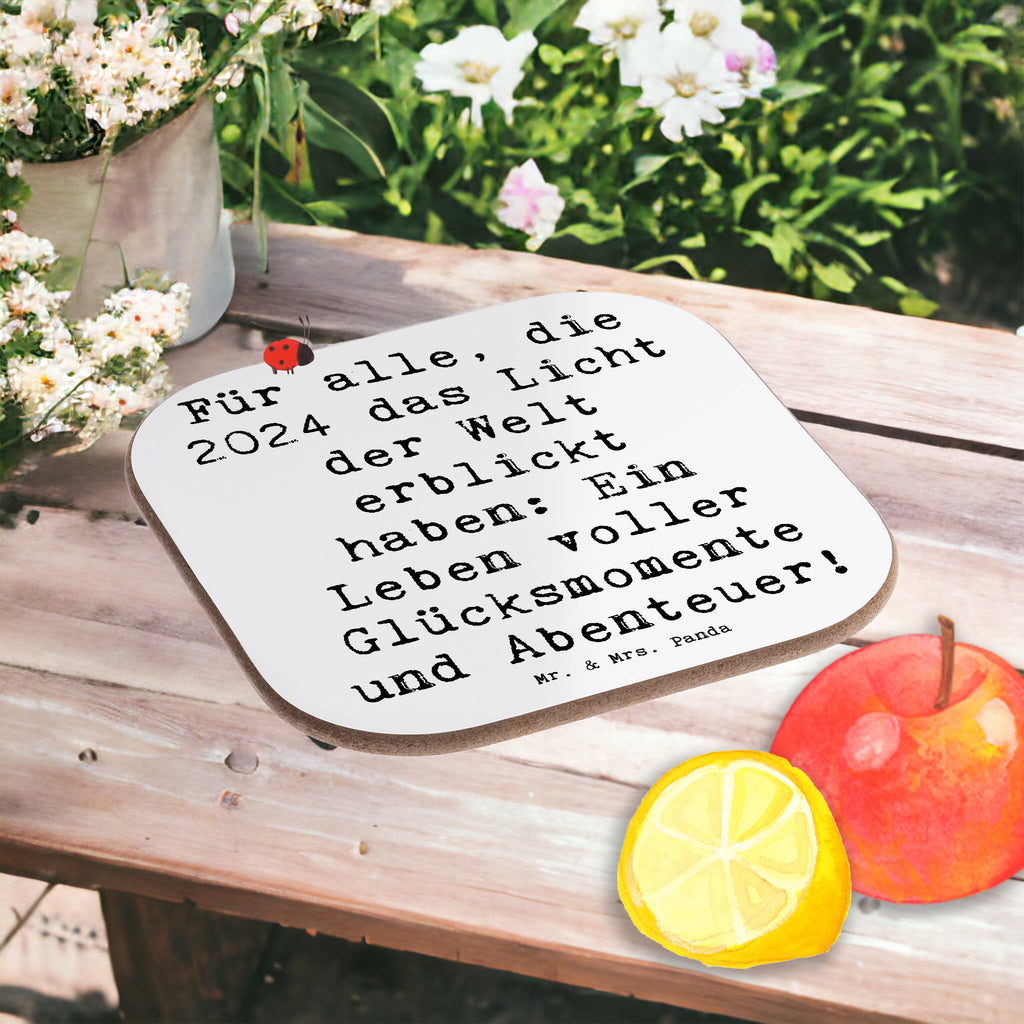 Für alle, die
2024 das Licht
der Welt
erblickt
haben: Ein
Leben voller
Glücksmomente
und Abenteuer!
Mr. & Mrs. Panda